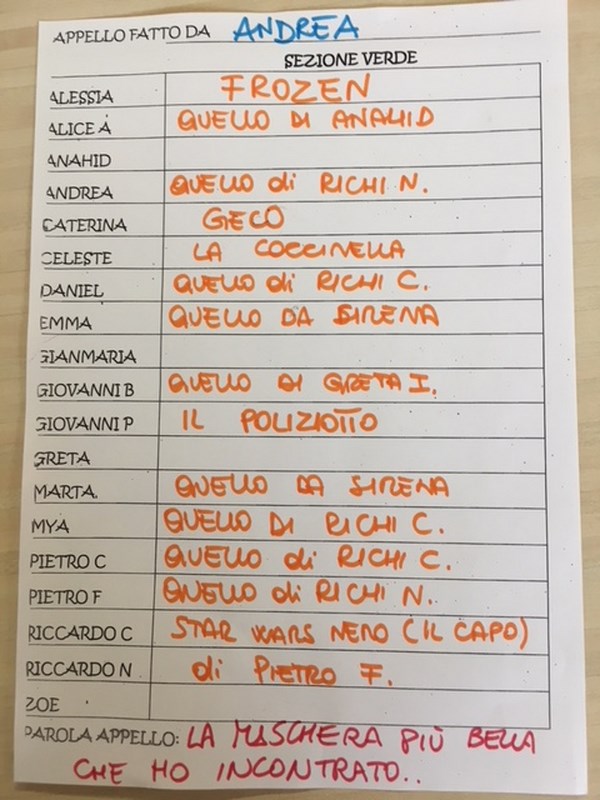 APPELLO FATTO DA ANDREA
SEZIONE VERDE
ALESSIA FROZEN
ALICE A QUELLO DI ANAHID
ANAHID
ANDREA QUELLO di RICHI N.
CATERINA GECO
CELESTE LA COCCINELLA
DANIEL QUELLO di RICHI C.
EMMA QUELLO DA SIRENA
GIANMARIA
GIOVANNI B QUELLO DI GRETA I.
GIOVANNI P IL POLIZIOTTO
GRETA
MARTA. QUELLO DA SIRENA
MYA QUELLO DI RICHI C.
PIETRO C QUELLO di RICHI C.
PIETRO F QUELLO di RICHI N.
RICCARDO C STAR WARS NERO (IL CAPO)
RICCARDO N di PIETRO F.
ZOE
PAROLA APPELLO: LA MASCHERA PIÙ BELLA
CHE HO INCONTRATO..